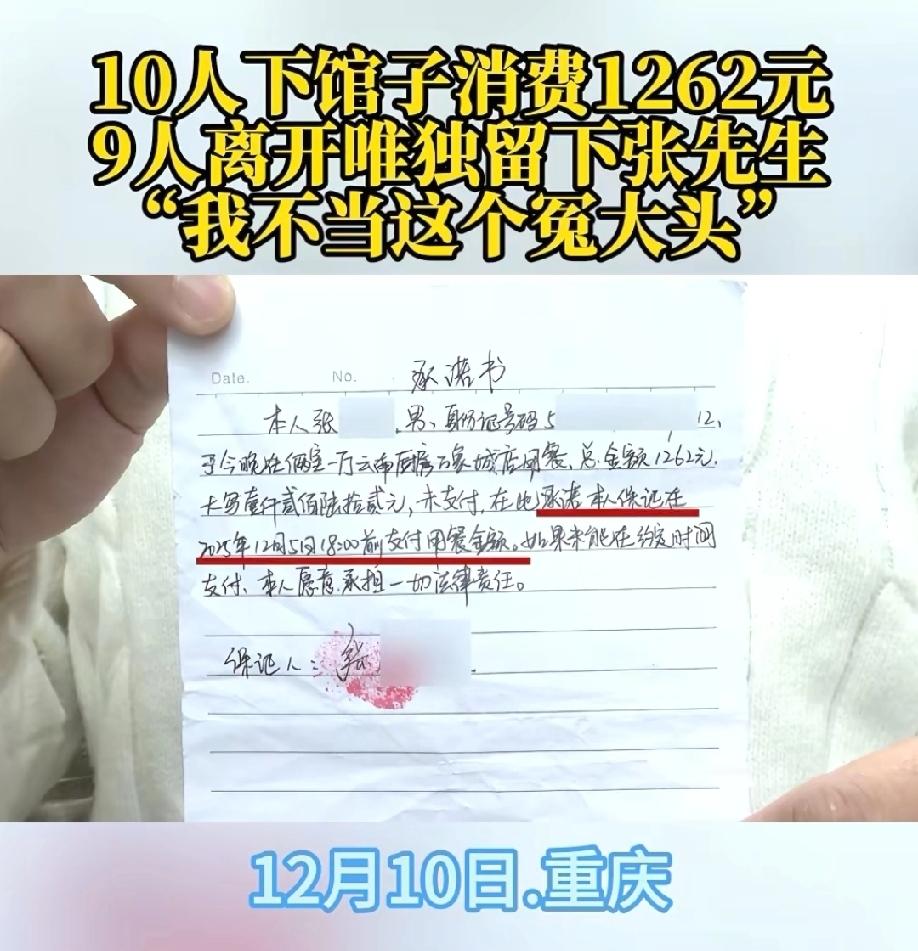 10人下馆子消费1262元
9人离开唯独留下张先生
“我不当这个冤大头”
Date. No. 承诺书
本人张 男、身份证号码5 12,
于今晚在俩室一厅云南厨房万象城店用餐，总金额1262元,
大写壹仟贰佰陆拾贰元，未支付，在此承诺本人保证在
2025年12月5日18:00前支付用餐金额。如果未能在约定时间
支付、本人愿意承担一切法律责任。
保证人：张
12月10日.重庆